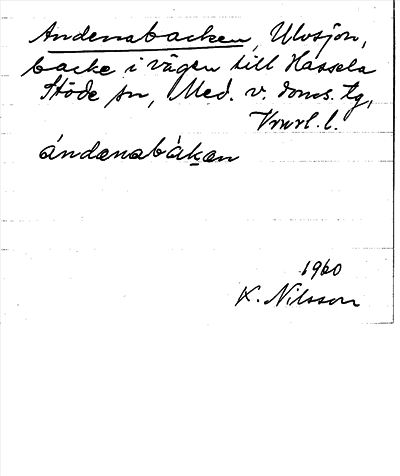 Andersabacken, Ulvsjön,
backe i vägen till Hassela
Stöde sn, Med. v. doms. tg,
Vnrl. l.
ándasabák̲an
1960
K. Nilsson